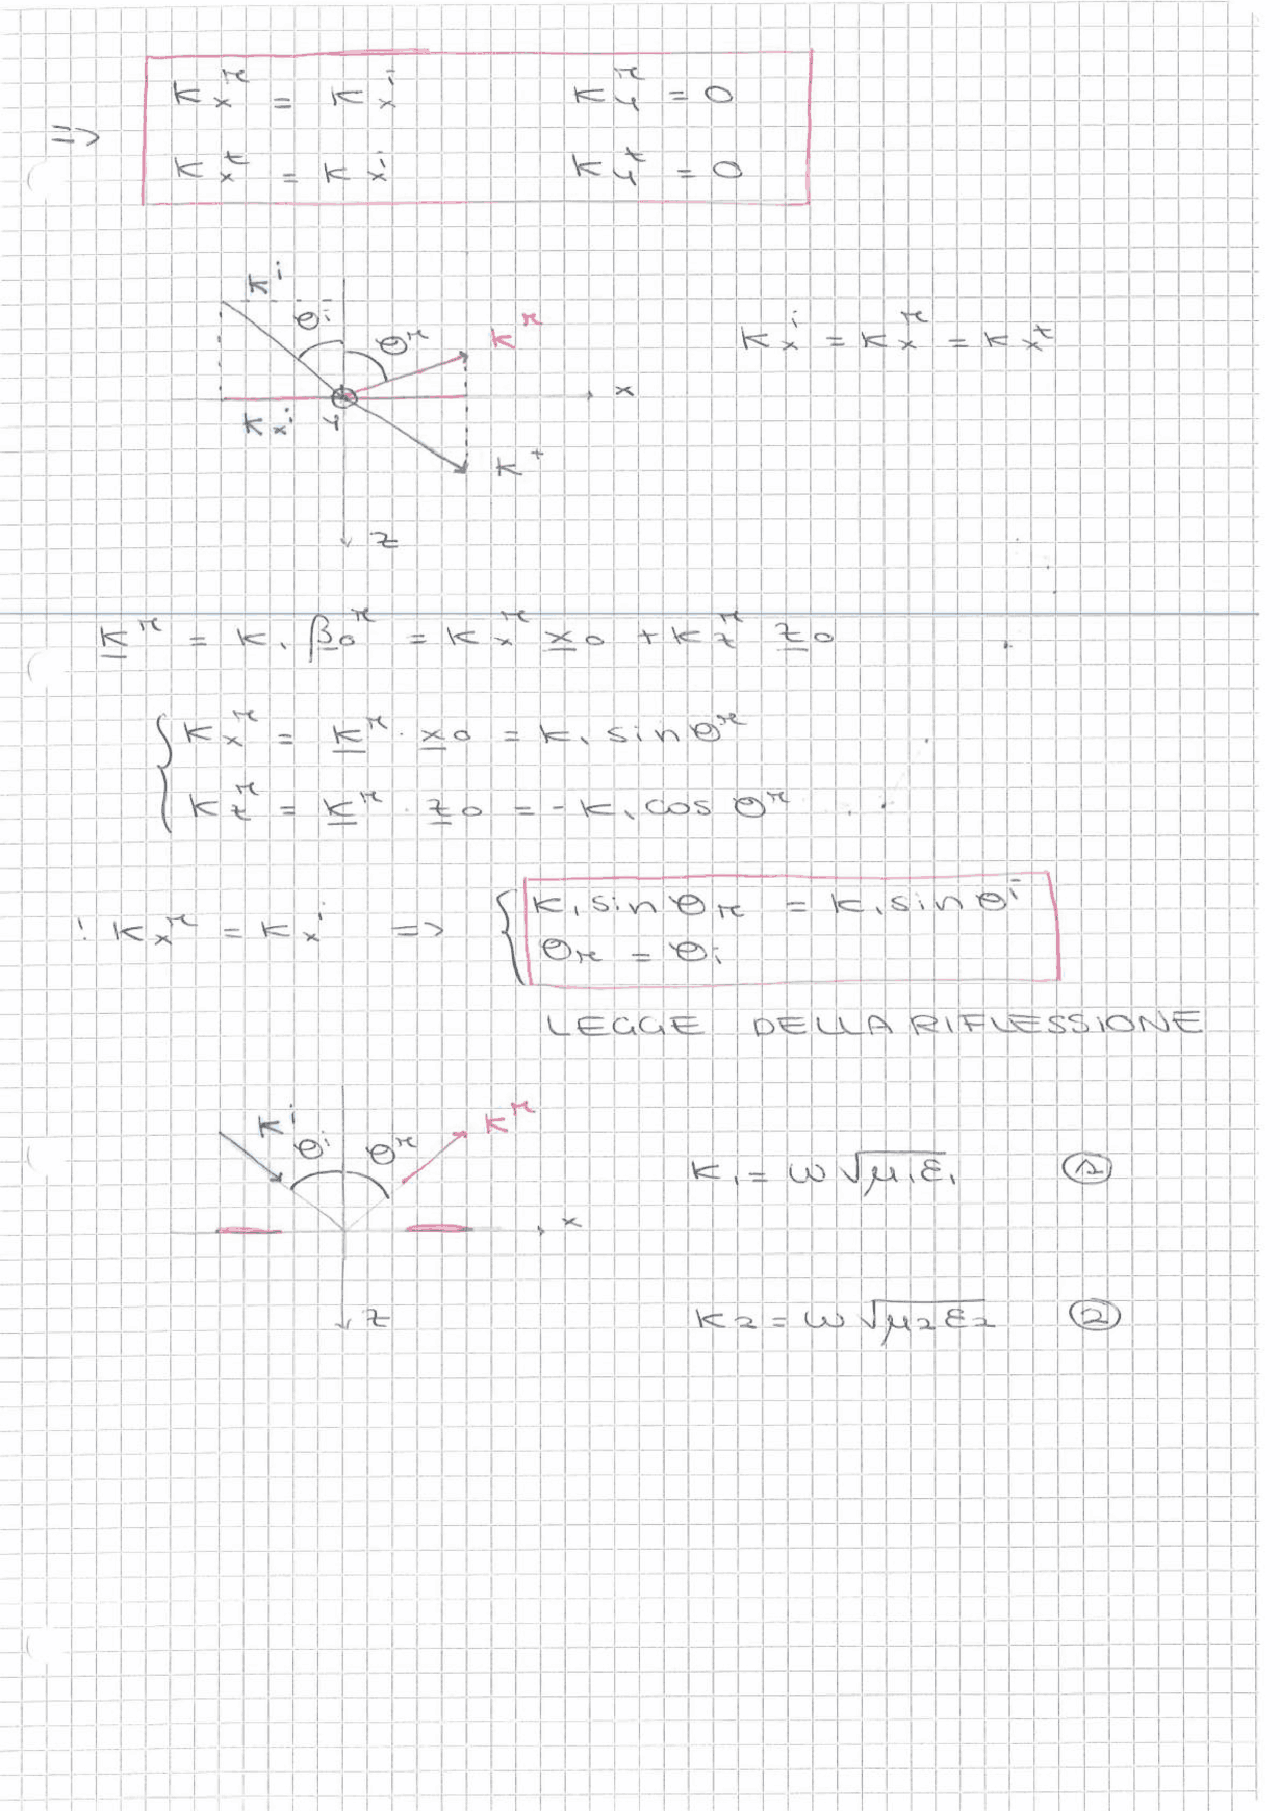 K_x^r = K_x^i K_y^r = 0
=> K_x^t = K_x^i K_y^t = 0
K^i
θ^i θ^r K^r K_x^i = K_x^r = K_x^t
x
K_x^i y
K^t
z
K^r = K_1 β_0^r = K_x^r x_0 + K_z^r z_0
K_x^r = K^r · x_0 = K_1 sin θ^r
K_z^r = K^r · z_0 = -K_1 cos θ^r
! K_x^r = K_x^i => { K_1 sin θ_r = K_1 sin θ^i
θ_r = θ_i
LEGGE DELLA RIFLESSIONE
K^i θ^i θ^r K^r
K_1 = ω √μ_1ε_1 ①
x
z K_2 = ω √μ_2ε_2 ②